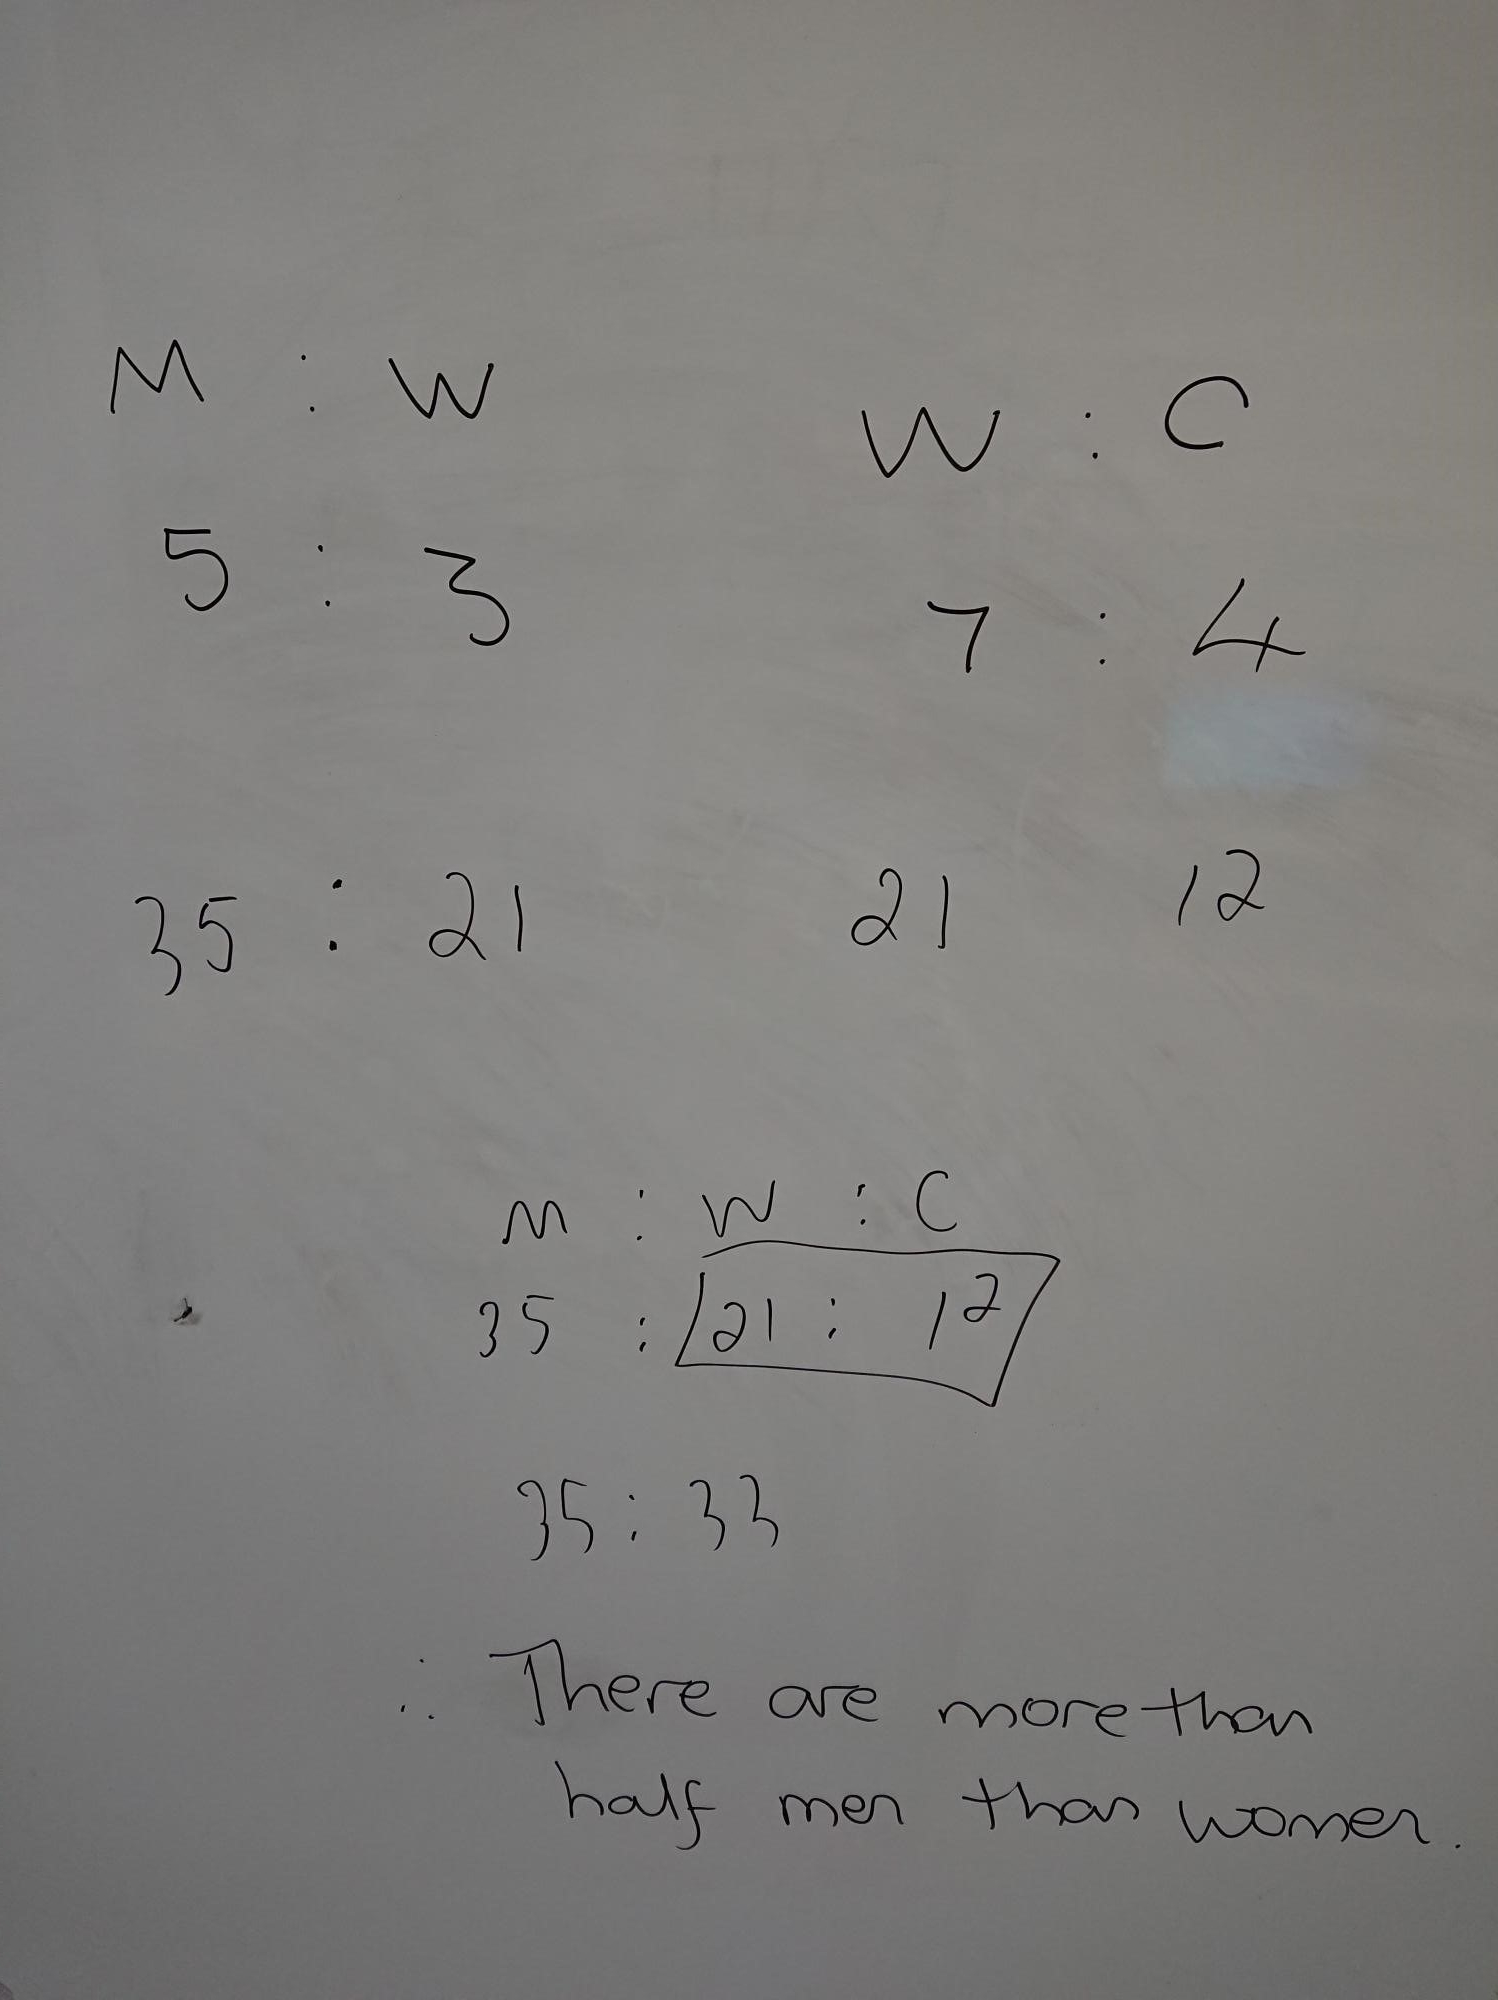 M : W
W : C
5 : 3
7 : 4
35 : 21
21 12
M : W : C
35 : 21 : 12
35 : 33
∴ There are more than
half men than women.